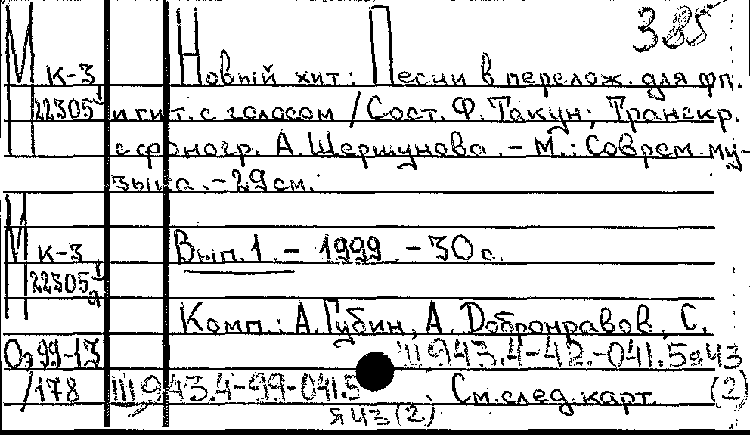 385
М К-3 Новый хит: Песни в перелож. для фп.
22305 1 и гит. с голосом / Сост. Ф. Такун; Транскр.
с фоногр. А. Шершунова. - М.: Соврем. му-
зыка. - 29 см.
М К-3 Вып. 1 - 1999. - 30 с.
22305 1
а
Комп.: А. Губин, А. Добронравов, С.
Оэ 99-13 Ш943.4-42.-041.5я43
/178 Ш943.4-99-041.5 См. след. карт. (2)
я43(2)